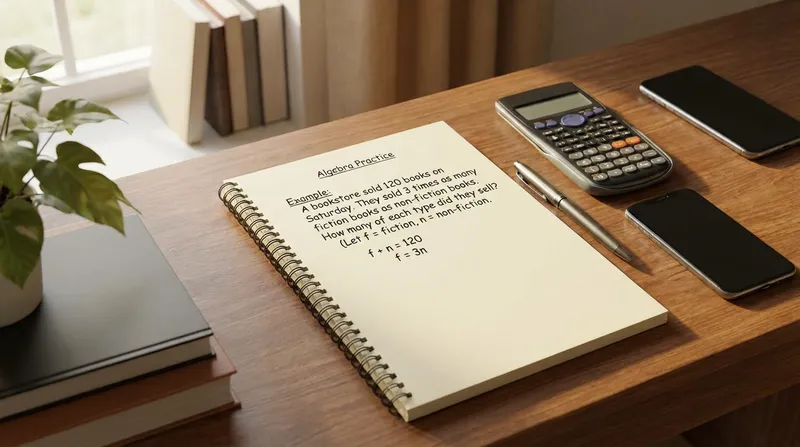 Algebra Practice
Example:
A bookstore sold 120 books on
Saturday. They sold 3 times as many
fiction books as non-fiction books.
How many of each type did they sell?
(Let f = fiction, n = non-fiction.
f + n = 120
f = 3n